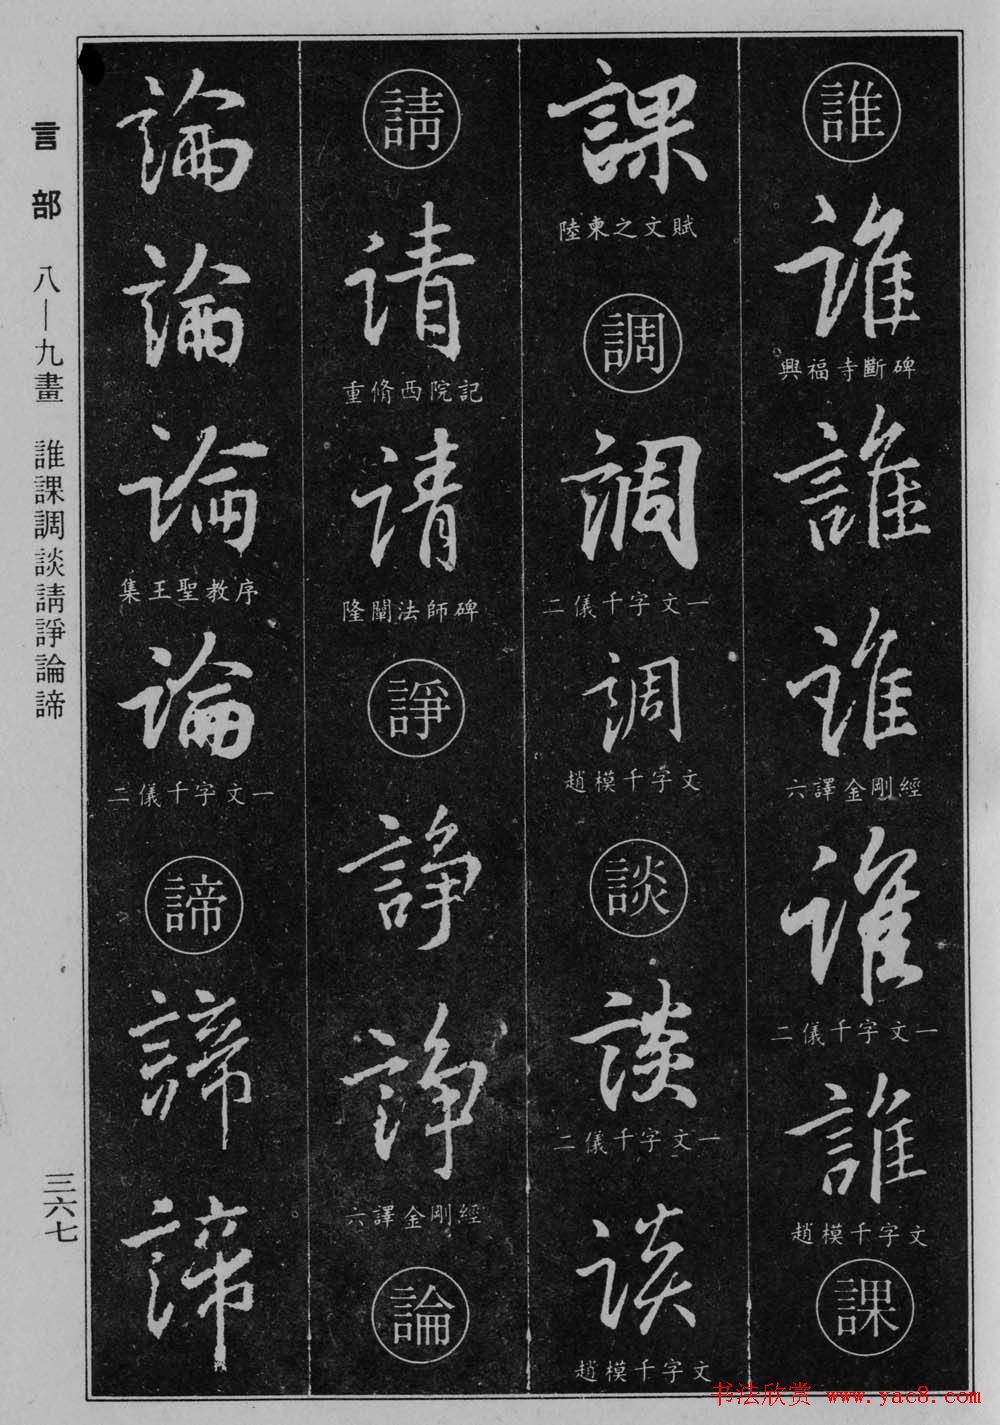 誰
誰
興福寺斷碑
誰
誰
六譯金剛經
誰
二儀千字文一
誰
趙模千字文
課
課
陸柬之文賦
調
調
二儀千字文一
調
趙模千字文
談
談
二儀千字文一
談
趙模千字文
請
请
重脩西院記
请
隆闡法師碑
諍
諍
诤
六譯金剛經
論
論
論
论
集王聖教序
论
二儀千字文一
諦
諦
諦
言部 八—九畫 誰課調談請諍論諦
三六七
书法欣赏 www.yac8.com